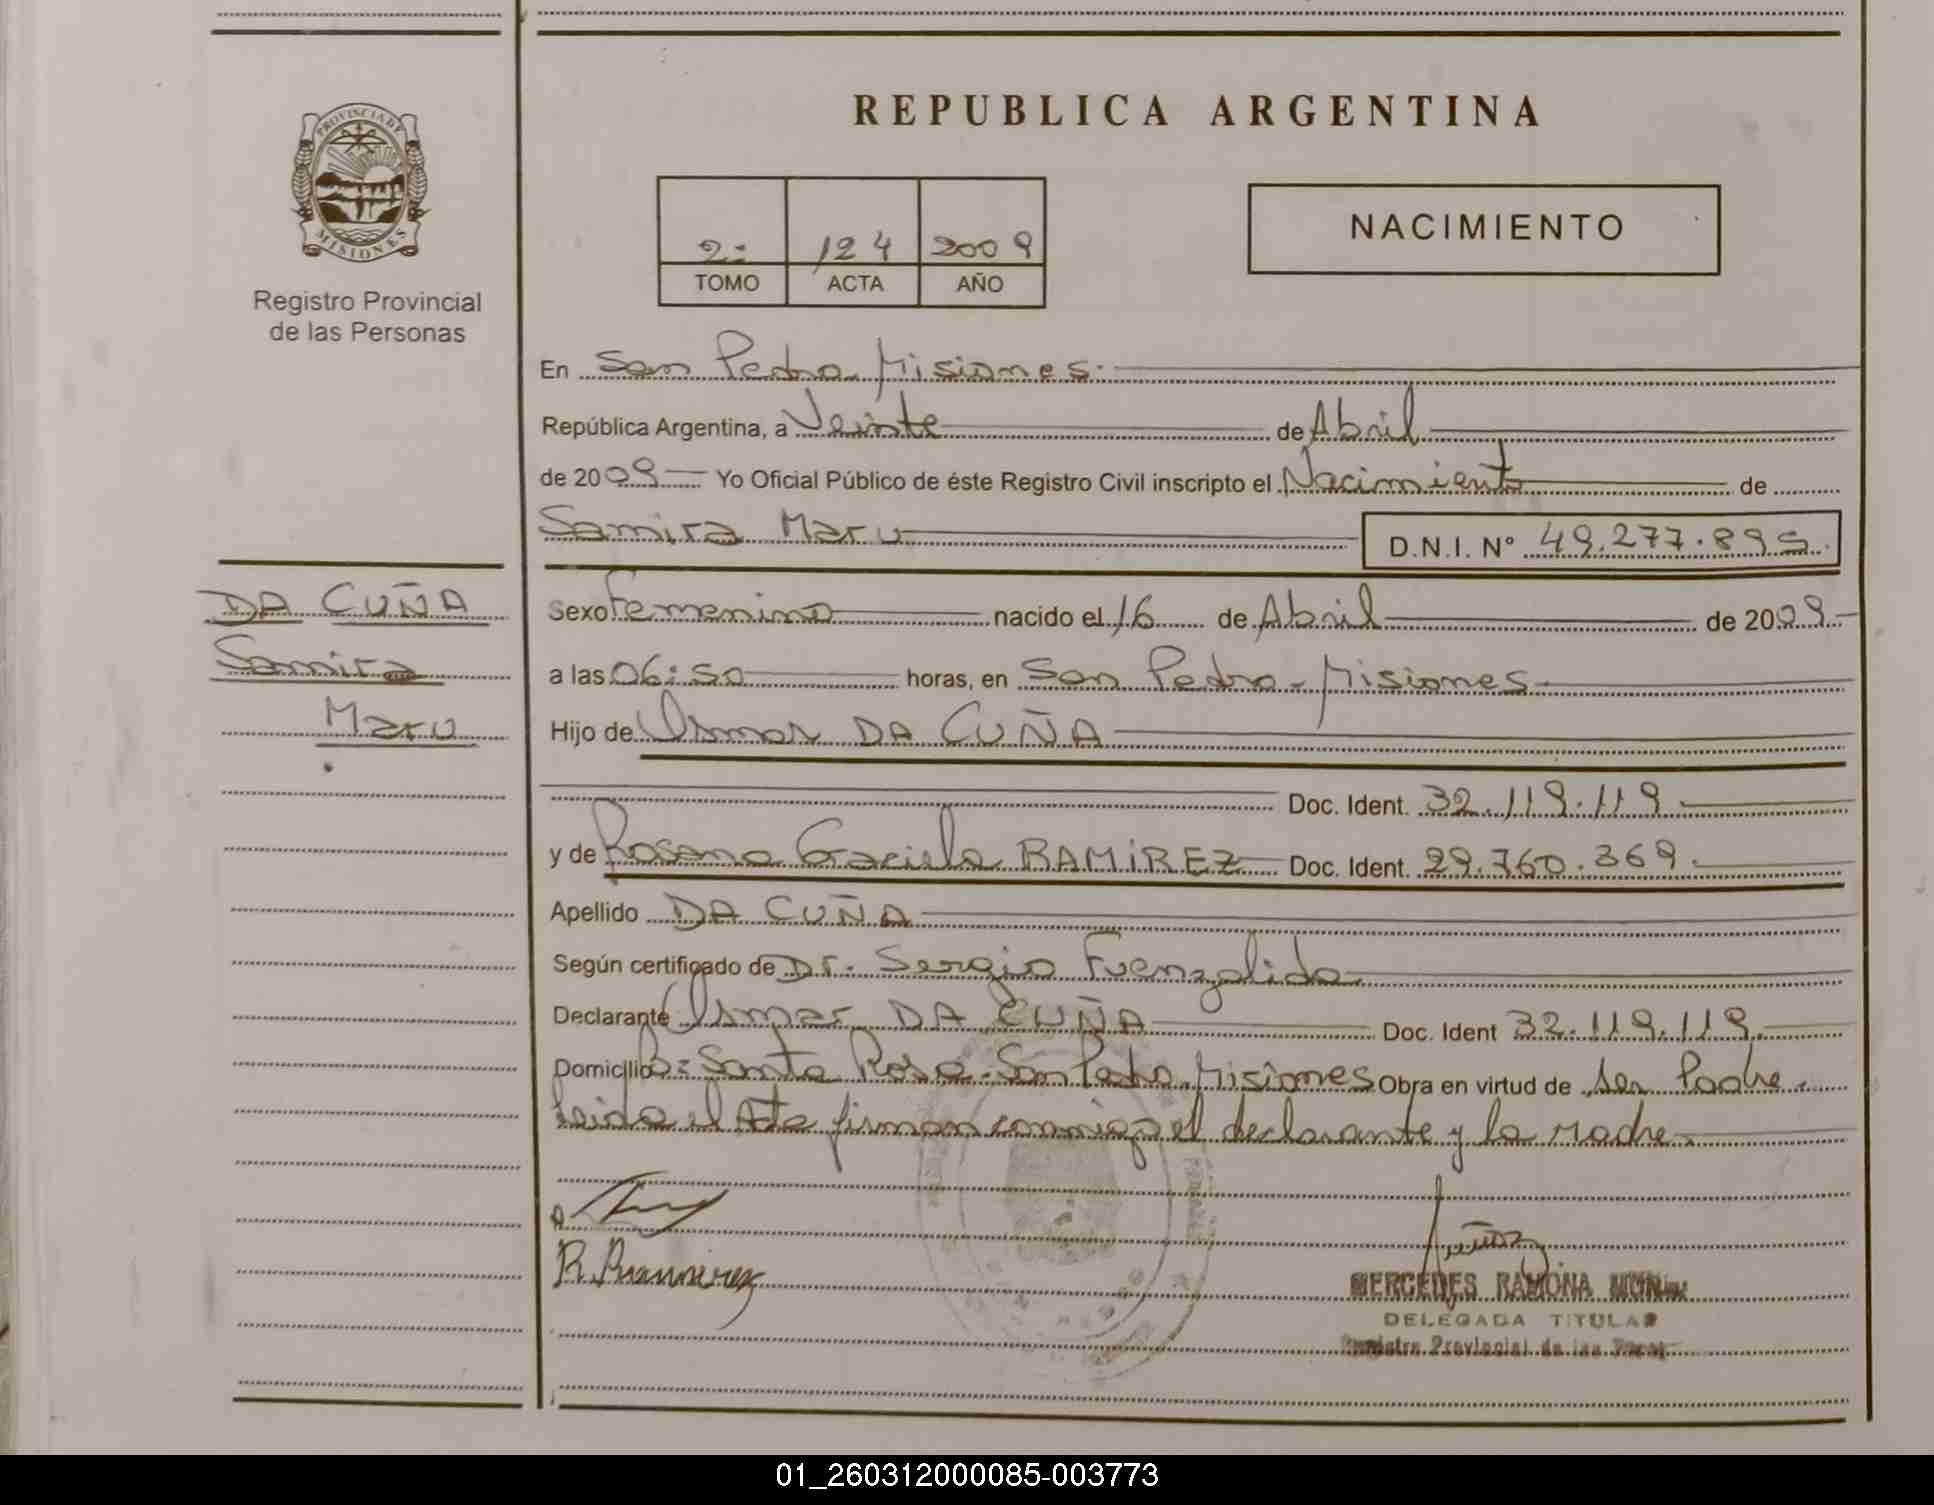 REPUBLICA ARGENTINA
PROVINCIA DE
MISIONES
Registro Provincial
de las Personas
2: 124 2009
TOMO ACTA AÑO
NACIMIENTO
En San Pedro Misiones.
República Argentina, a Veinte de Abril
de 2009 Yo Oficial Público de éste Registro Civil inscripto el Nacimiento de
Samira Maru D.N.I. Nº 49.277.895
DA CUÑA
Samira
Maru
Sexo Femenino nacido el 16 de Abril de 2009
a las 06:50 horas, en San Pedro - Misiones
Hijo de Ismar DA CUÑA
Doc. Ident. 32.119.119
y de Rosana Graciela RAMIREZ Doc. Ident. 29.760.369.
Apellido DA CUÑA
Según certificado de Dr. Sergio Fuenzalida
Declarante Ismar DA CUÑA Doc. Ident 32.119.119.
Domicilio Bº: Santa Rosa - San Pedro Misiones Obra en virtud de ser Padre.
leida el Acta firman conmigo el declarante y la Madre
R. Ramirez
MERCEDES RAMONA
DELEGADA TITULAR
Registro Provincial de las
01_260312000085-003773